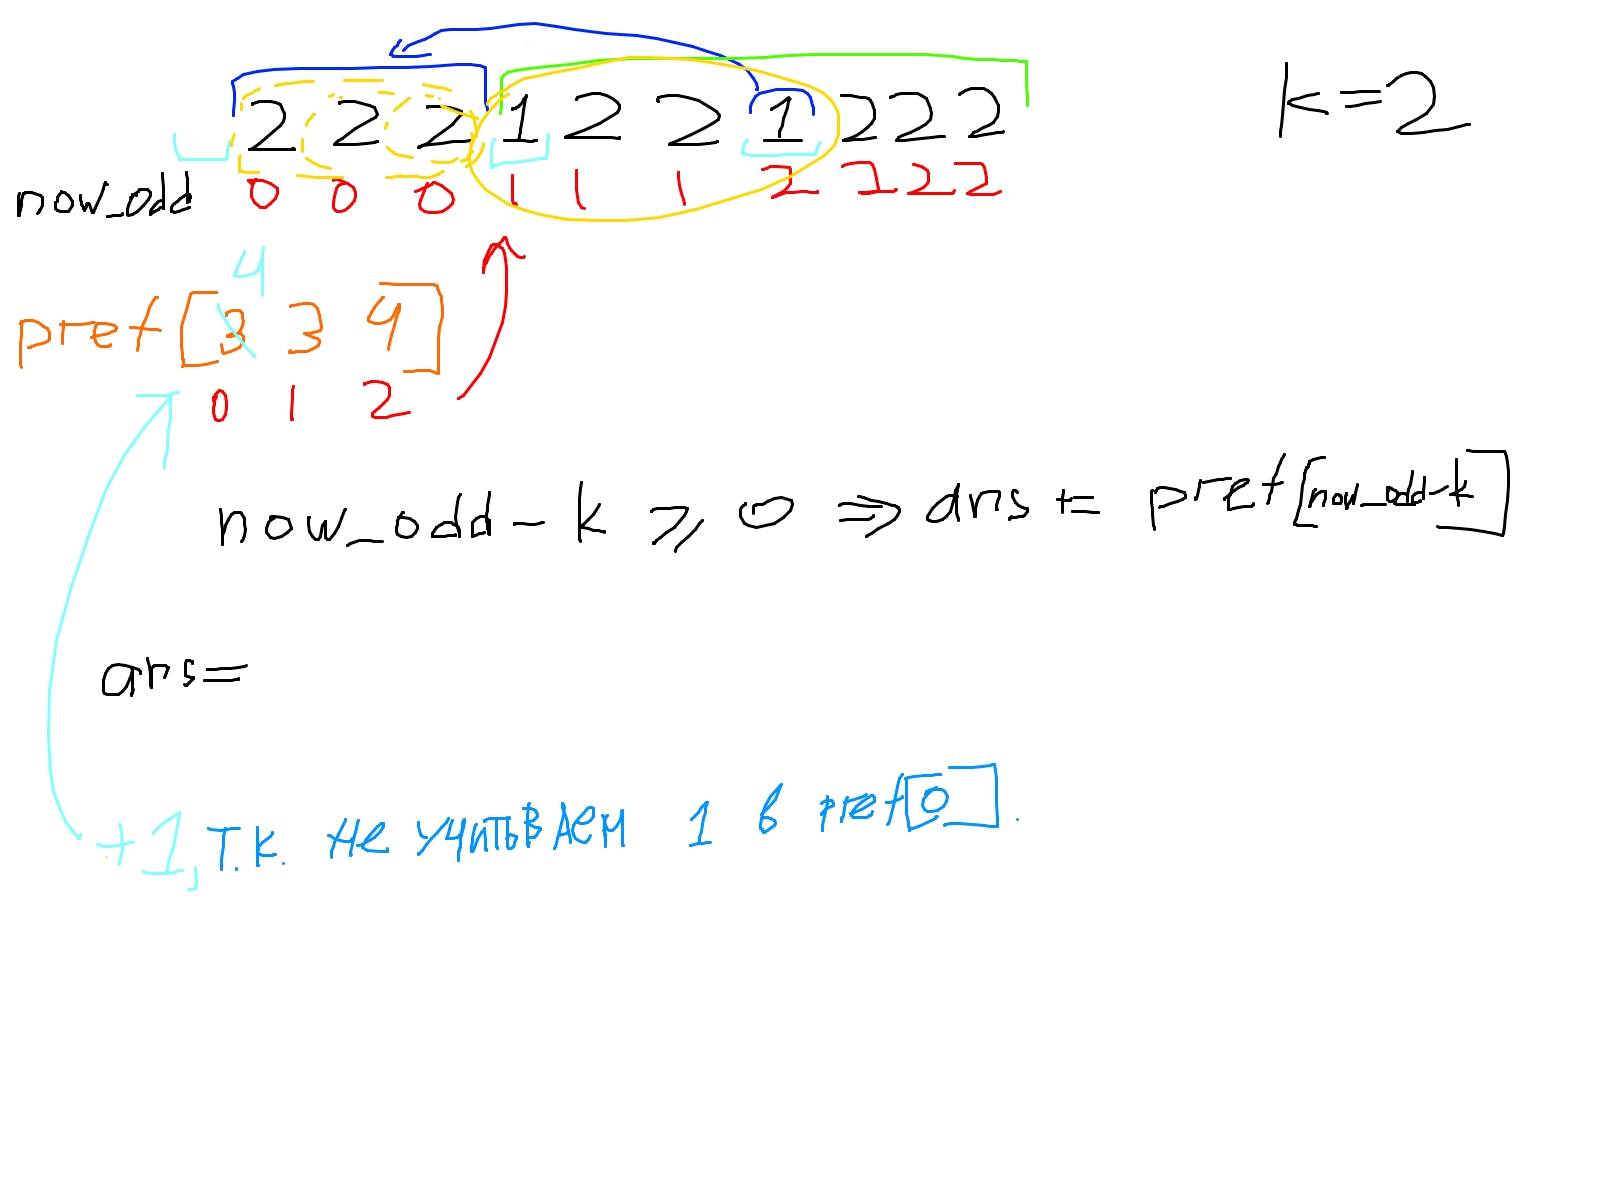 2 2 2 1 2 2 1 2 2 2 k=2
now_odd 0 0 0 1 1 1 2 2 2 2
4
pref [3 3 4]
0 1 2
now_odd - k ⩾ 0 ⇒ ans += pref[now_odd-k]
ans=
+1, т.к. не учитываем 1 в pref[0].